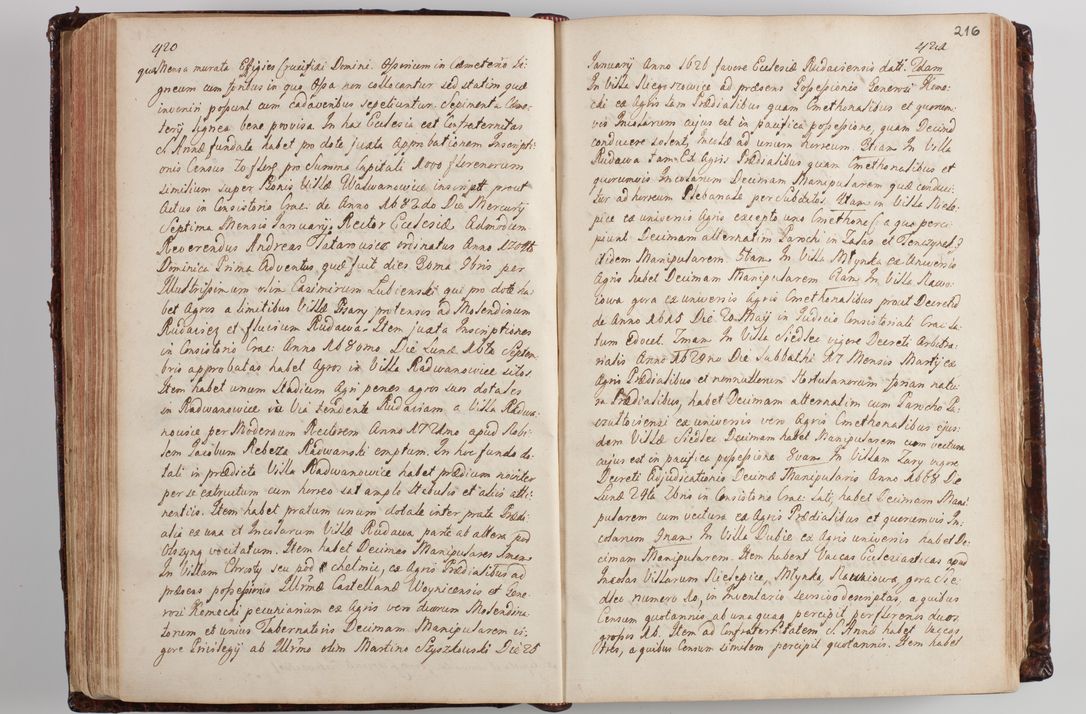 420
qua Mensa murata Effigies Crucifixi Domini. Ossorium in cæmeterio li-
gneum cum fontus in quo Ossa non collocantur sed statim quæ
inveniri possunt cum cadaveribus sepeliuntur. Sepimenta Cæme-
terij lignea bene provisa. In hac Ecclesia est Confraternitas
S. Annæ fundata habet pro dote juxta approbationem Inscripti-
onis Census
similium super Bonis Villæ Radwanowice inscript prout
Actus in Consistorio Crac: de Anno 1682do Die Mercurij
Septima Mensis Januarij. Rector Ecclesiæ Admodum
Reverendus Andreas Tatarowicz ordinatus Anno
Dominica Prima Adventus quæ fuit dies 30ma 9bris per
Illustrissimum olim Casimirum Lubienski qui pro dote ha-
bet Agros a limitibus Villæ Psary protensos ad Molendinum
Rudawicz et fluvium Rudawa. Item juxta Inscriptiones
in Consistorio Crac: Anno 1680mo Die Lunæ 16ta Septem-
bris approbatas habet Agros in Villa Radwanowice sitos.
Item habet unum Stadium Agri penes agros suos dotales
in Radwanowice in Via tendente Rudaviam a Villa Radwa-
nowice per Modernum Rectorem Anno 1772do apud Nobi-
lem Jacobum Rebeza Radwanski emptum. In hoc fundo do-
tali in prædicta Villa Radwanowice habet prædium noviter
per se extructum cum horreo sat amplo Stabulis et aliis atti-
nentiis. Item habet pratum unum dotale inter prata Prædi-
alia ex una et Incolarum Villæ Rudawa parte ab altera pod
Olszyną vocitatum. Item habet Decimas Manipulares Imam
In Villam Chrosty seu pod chełmie, ex Agris Prædialibus ad
præsens possessionis Illrmæ Castellanæ Woynicensis et Gene-
rosi Remecki pecuniariam ex Agris vero duorum Molendina-
torum et unius Tabernatoris Decimam Manipularem vi-
gore Privilegij ab Illrmo olim Martino Szyszkowski Die 25

216
421
Januarij Anno 1626 favore Ecclesiæ Rudaviensis dati. 2dam
In Villa Niegoszowice ad præsens Possessionis Generosi Reme-
cki ex Agris tam Prædialibus quam Cmethonalibus et quorum-
vis Incolarum cujus est in pacifica possessione, quam Decimā
conducere solent, Incolæ ad unum horreum 3tiam In Villa
Rudawa tam Ex Agris Prædialibus quam Cmethonalibus et
quorumvis Incolarum Decimam Manipularem quæ conduci-
tur ad horreum Plebanale per Subditos. 4tam in Villa Niele-
pice ex universis Agris excepto uno Cmethone (a quo perci-
piunt Decimam alternatim Parochi in Zalas et Tenczynek)
itidem Manipularem 5tam In Villa Młynka ex Universis
Agris habet Decimam Manipularem 6tam In Villa Nawo-
iowa gora ex universis Agris Cmethonalibus prout Decreto
de Anno 1615 Die 20 Maij in Judicio Consistoriali Crac: La-
tum Edocet. 7mam In Villa Siedlec vigore Decreti Arbitra-
rialis Anno 1629no Die Sabbathi 17 Mensis Martij ex
Agris Prædialibus et nonnullorum Hortulanorum forsan natu-
ra Prædialibus, habet Decimam alternatim cum Parocho Pa-
czułtoviensi ex universis vero Agris Cmethonalibus ejus-
dem Villæ Siedlec Decimam habet Manipularem cum vectura
cujus est in pacifica possessione 8vam In Villam Zary vigore
Decreti Adjudicatorio Decimæ Manipularis Anno 1668 Die
Lunæ 24ta 7bris in Consistorio Crac: Lati, habet Decimam Mani-
pularem cum vectura ex Agris Prædialibus et quorumvis In-
colarum 9nam In Villa Dubie ex Agris universis habet De-
cimam Manipularem. Item habent Vaccas Ecclesiasticas apud
Incolas Villarum Nielepice, Młynka, Nawoiowa, gora Sie-
dlec numero 10, in Inventario seorsivo descriptas, a quibus
Censum quotannis ab unaquaq percipit per florenos duos
grossos 16. Item ad Confraternitatem S. Annæ habet Vaccas
tres, a quibus Censum similem percipit quotannis. Item habet